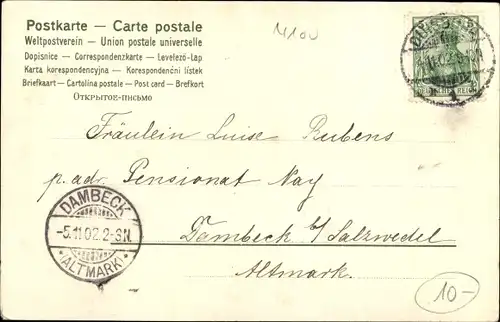 Postkarte — Carte postale
Weltpostverein — Union postale universelle
Dopisnice — Correspondenzkarte — Levelező-Lap
Karta korespondencyjna — Korespondenční lístek
Briefkaart — Cartolina postale — Post card — Brefkort
Открытое-письмо
4100
DEUTSCHES REICH
1
Fräulein Luise Rubens
p. adr. Pensionat Nay
Dambeck b/ Salzwedel
Altmark.
DAMBECK
-5.11.02.2-3N.
*(ALTMARK)*
10-